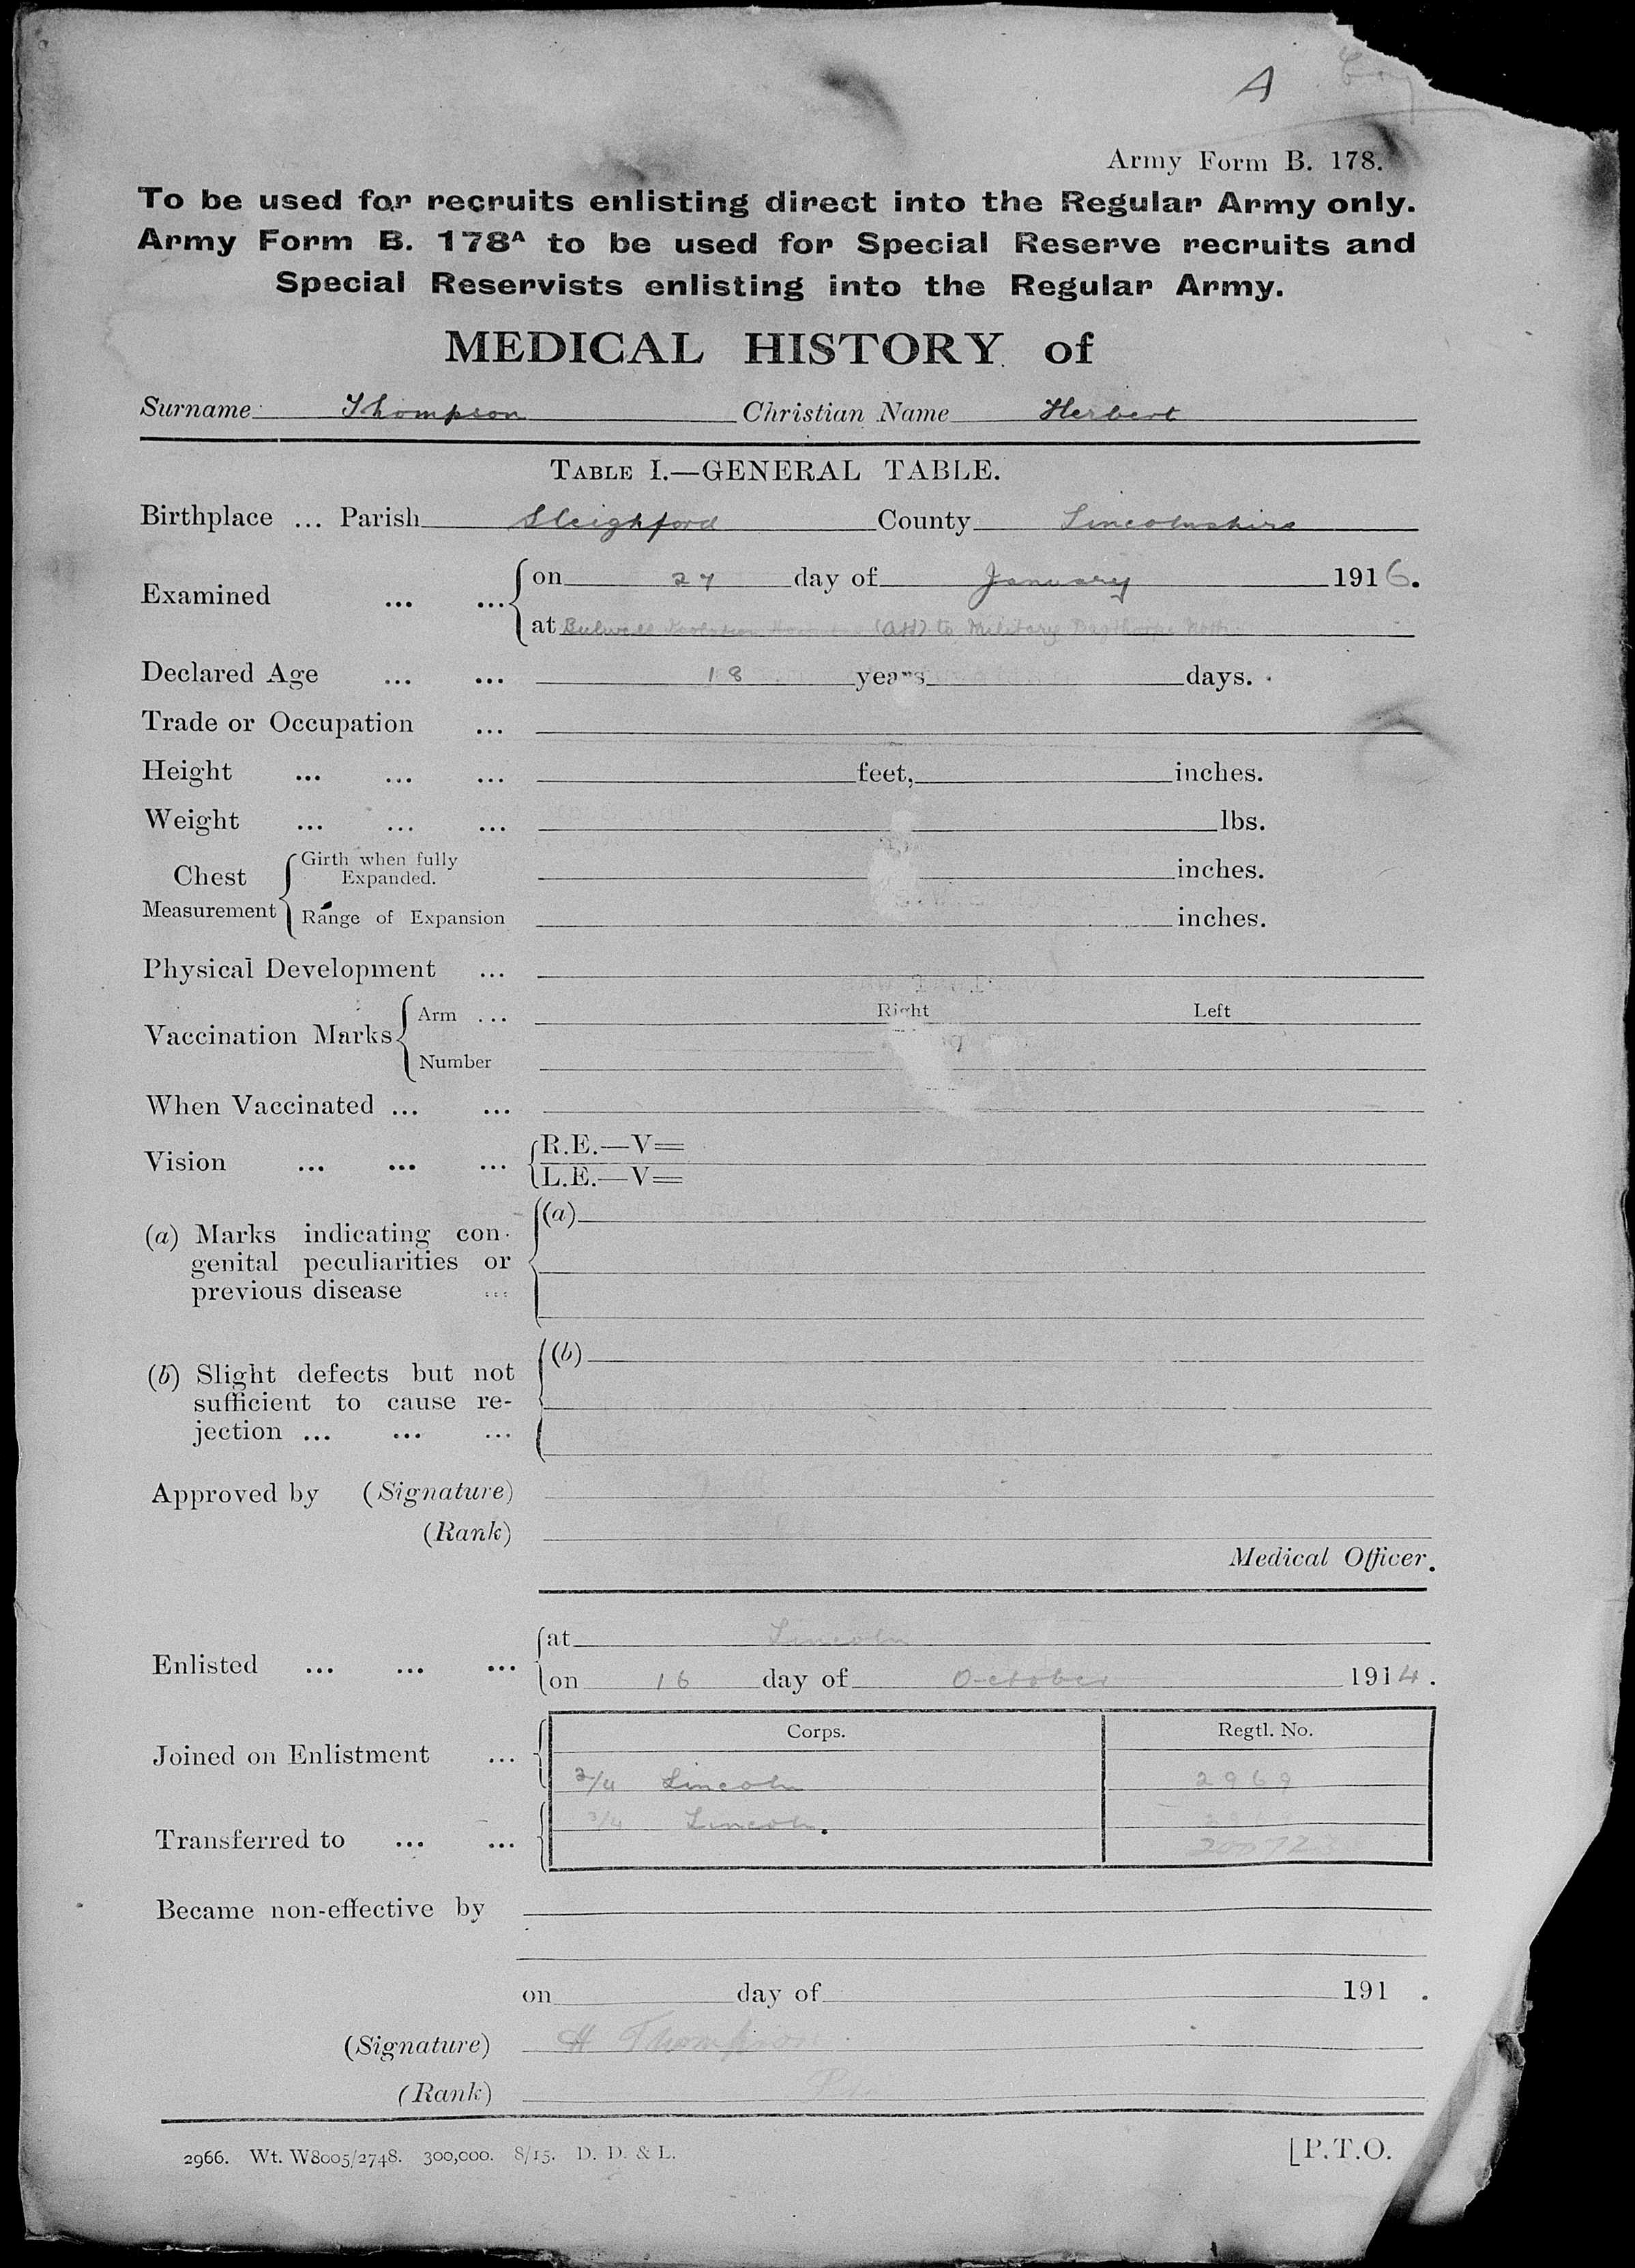 A
Army Form B. 178.
To be used for recruits enlisting direct into the Regular Army only.
Army Form B. 178A to be used for Special Reserve recruits and
Special Reservists enlisting into the Regular Army.
MEDICAL HISTORY of
Surname Thompson Christian Name Herbert
TABLE I.—GENERAL TABLE.
Birthplace ... Parish Sleighford County Lincolnshire
Examined ... ... on 27 day of January 1916.
at Bulwell Isolation (Att) to Military Bagthorpe Notts
Declared Age ... ... 18 years days.
Trade or Occupation ...
Height ... ... ... feet, inches.
Weight ... ... ... lbs.
Chest Measurement Girth when fully Expanded. inches.
Range of Expansion inches.
Physical Development ...
Vaccination Marks Arm ... Right Left
Number
When Vaccinated ... ...
Vision ... ... ... R.E.—V=
L.E.—V=
(a) Marks indicating con- (a)
genital peculiarities or
previous disease ...
(b) Slight defects but not (b)
sufficient to cause re-
jection ... ... ...
Approved by (Signature)
(Rank)
Medical Officer.
Enlisted ... ... ... at Lincoln
on 16 day of October 1914.
Corps. Regtl. No.
Joined on Enlistment ... 2/4 Lincoln 2969
3/4 Lincoln.
Transferred to ... ...
Became non-effective by
on day of 191 .
(Signature) H Thompson
(Rank) Pte
2966. Wt. W8005/2748. 300,000. 8/15. D. D. & L. [P.T.O.